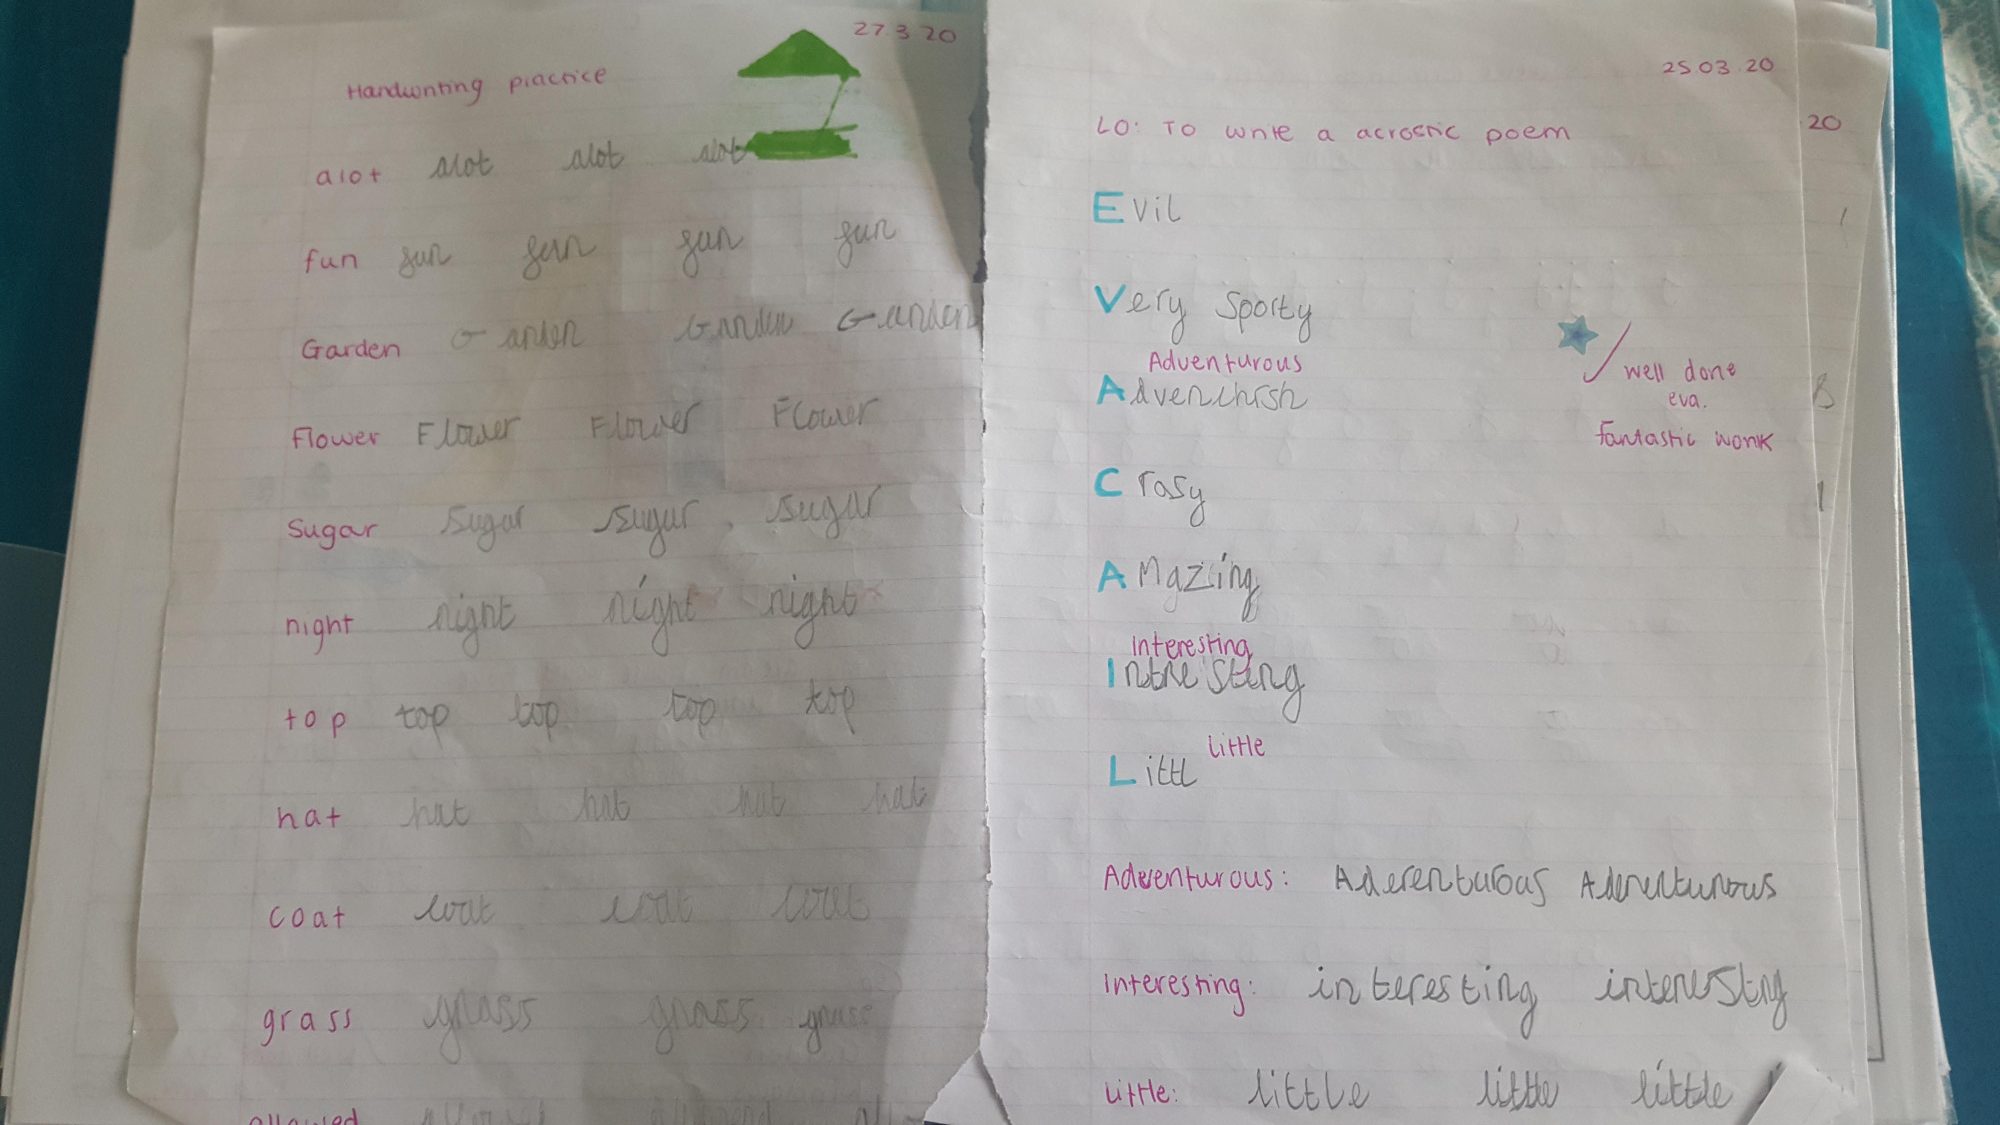 27 3 20
Handwriting practice
alot alot alot alot
fun fun fun fun fun
Garden Garden Garden Garden
Flower Flower Flower Flower
Sugar Sugar Sugar Sugar
night night night night
top top top top top
hat hat hat hat hat
coat coat coat coat
grass grass grass grass
allowed
25 03 20
LO: To write a acrostic poem
20
Evil
Very Sporty
Adventurous
Advenchrsh
well done
eva.
fantastic work
Crasy
AMazing
Interesting
Intresting
Little
Littl
Adventurous: Adventurous Adventurous
Interesting: interesting interestng
Little: little little little